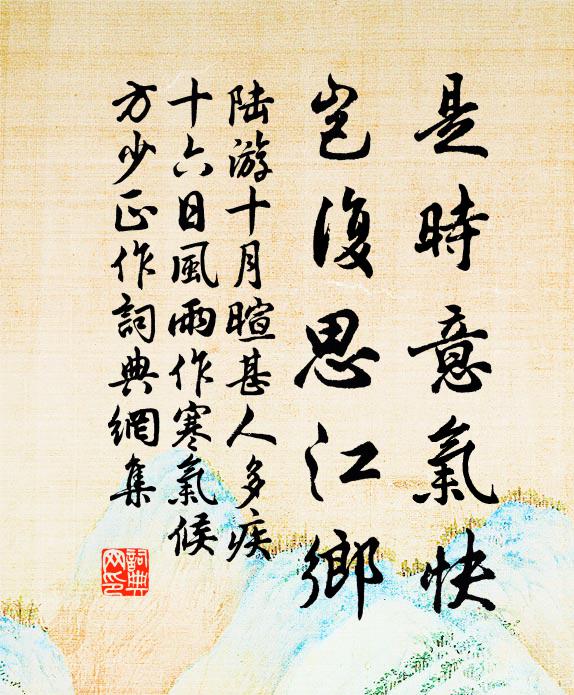 是時意氣快
豈復思江鄉
陆游十月暄甚人多疾
十六日風雨作寒氣候
方少正作詞典網集
詞典
网印